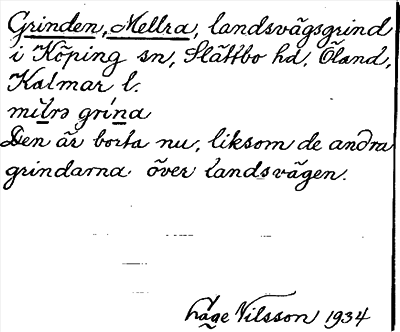 Grinden, Mellra, landsvägsgrind
i Köping sn, Slättbo hd, Öland,
Kalmar l.
mı̆lrə grína
Den är borta nu, liksom de andra
grindarna över landsvägen.
Håge Nilsson 1934